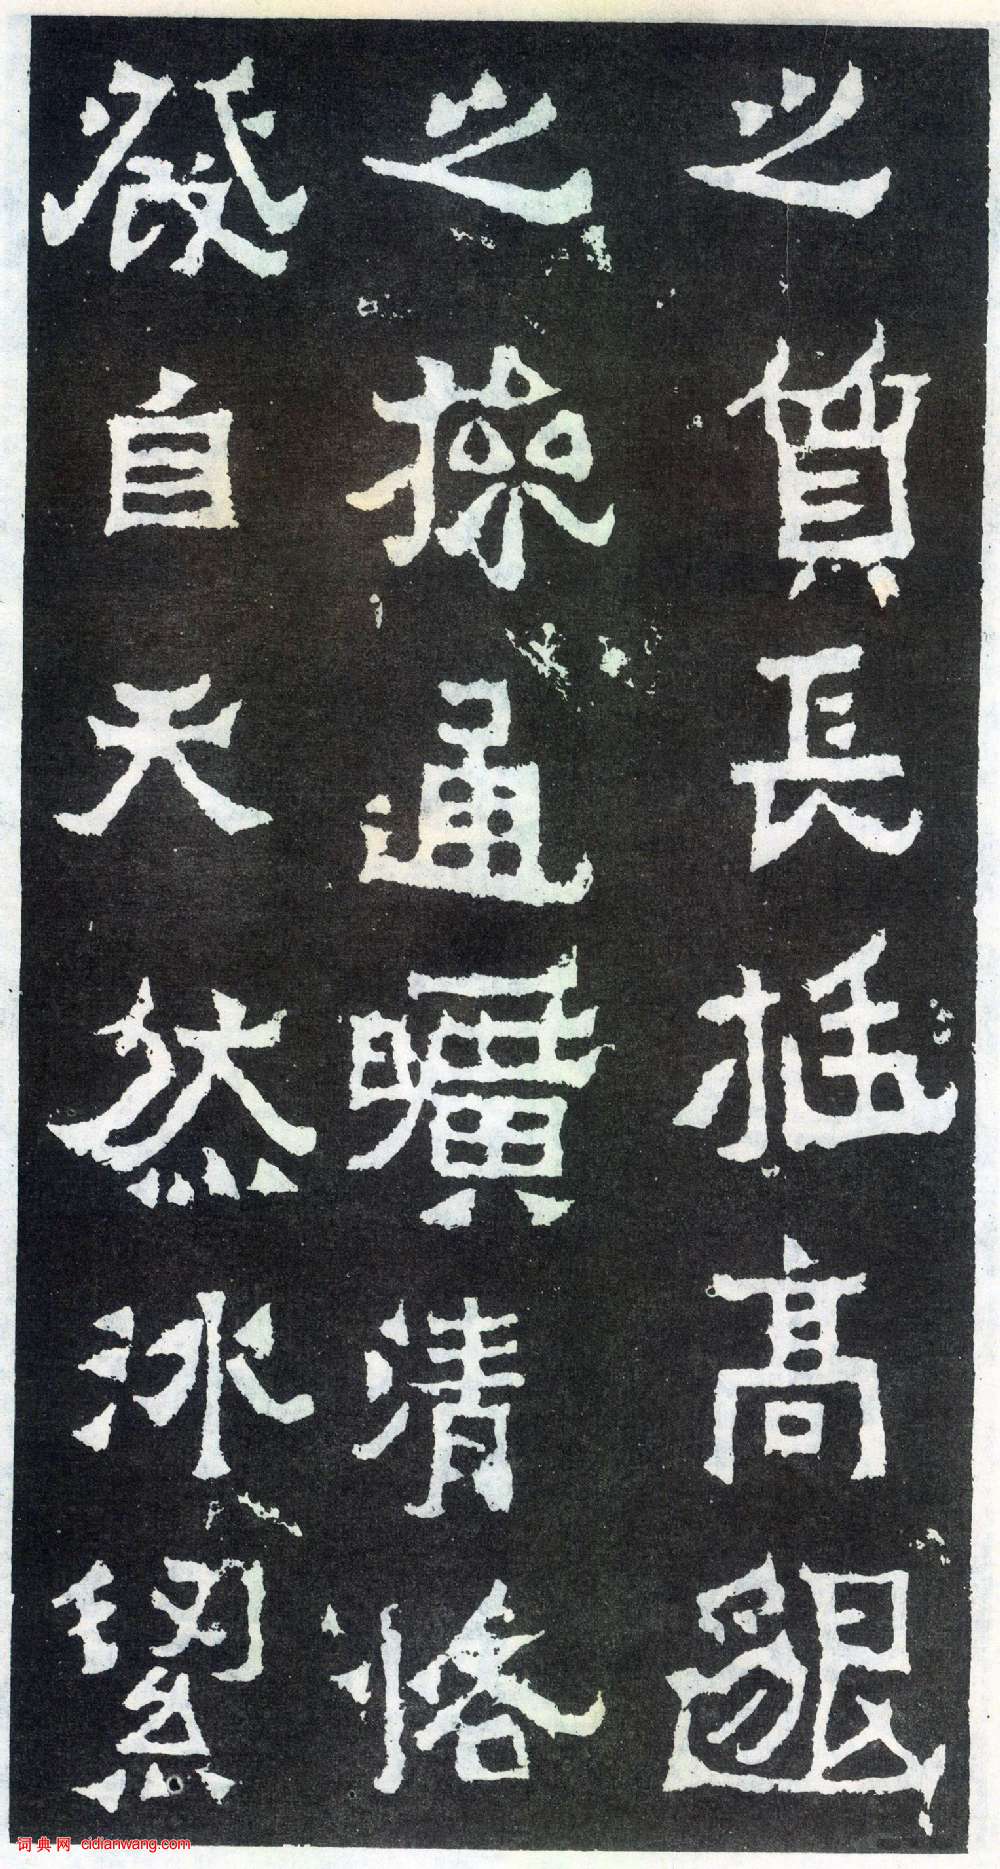 之質長挺高邈
之操通曠清恪
發自天然冰絜
词典网 cidianwang.com